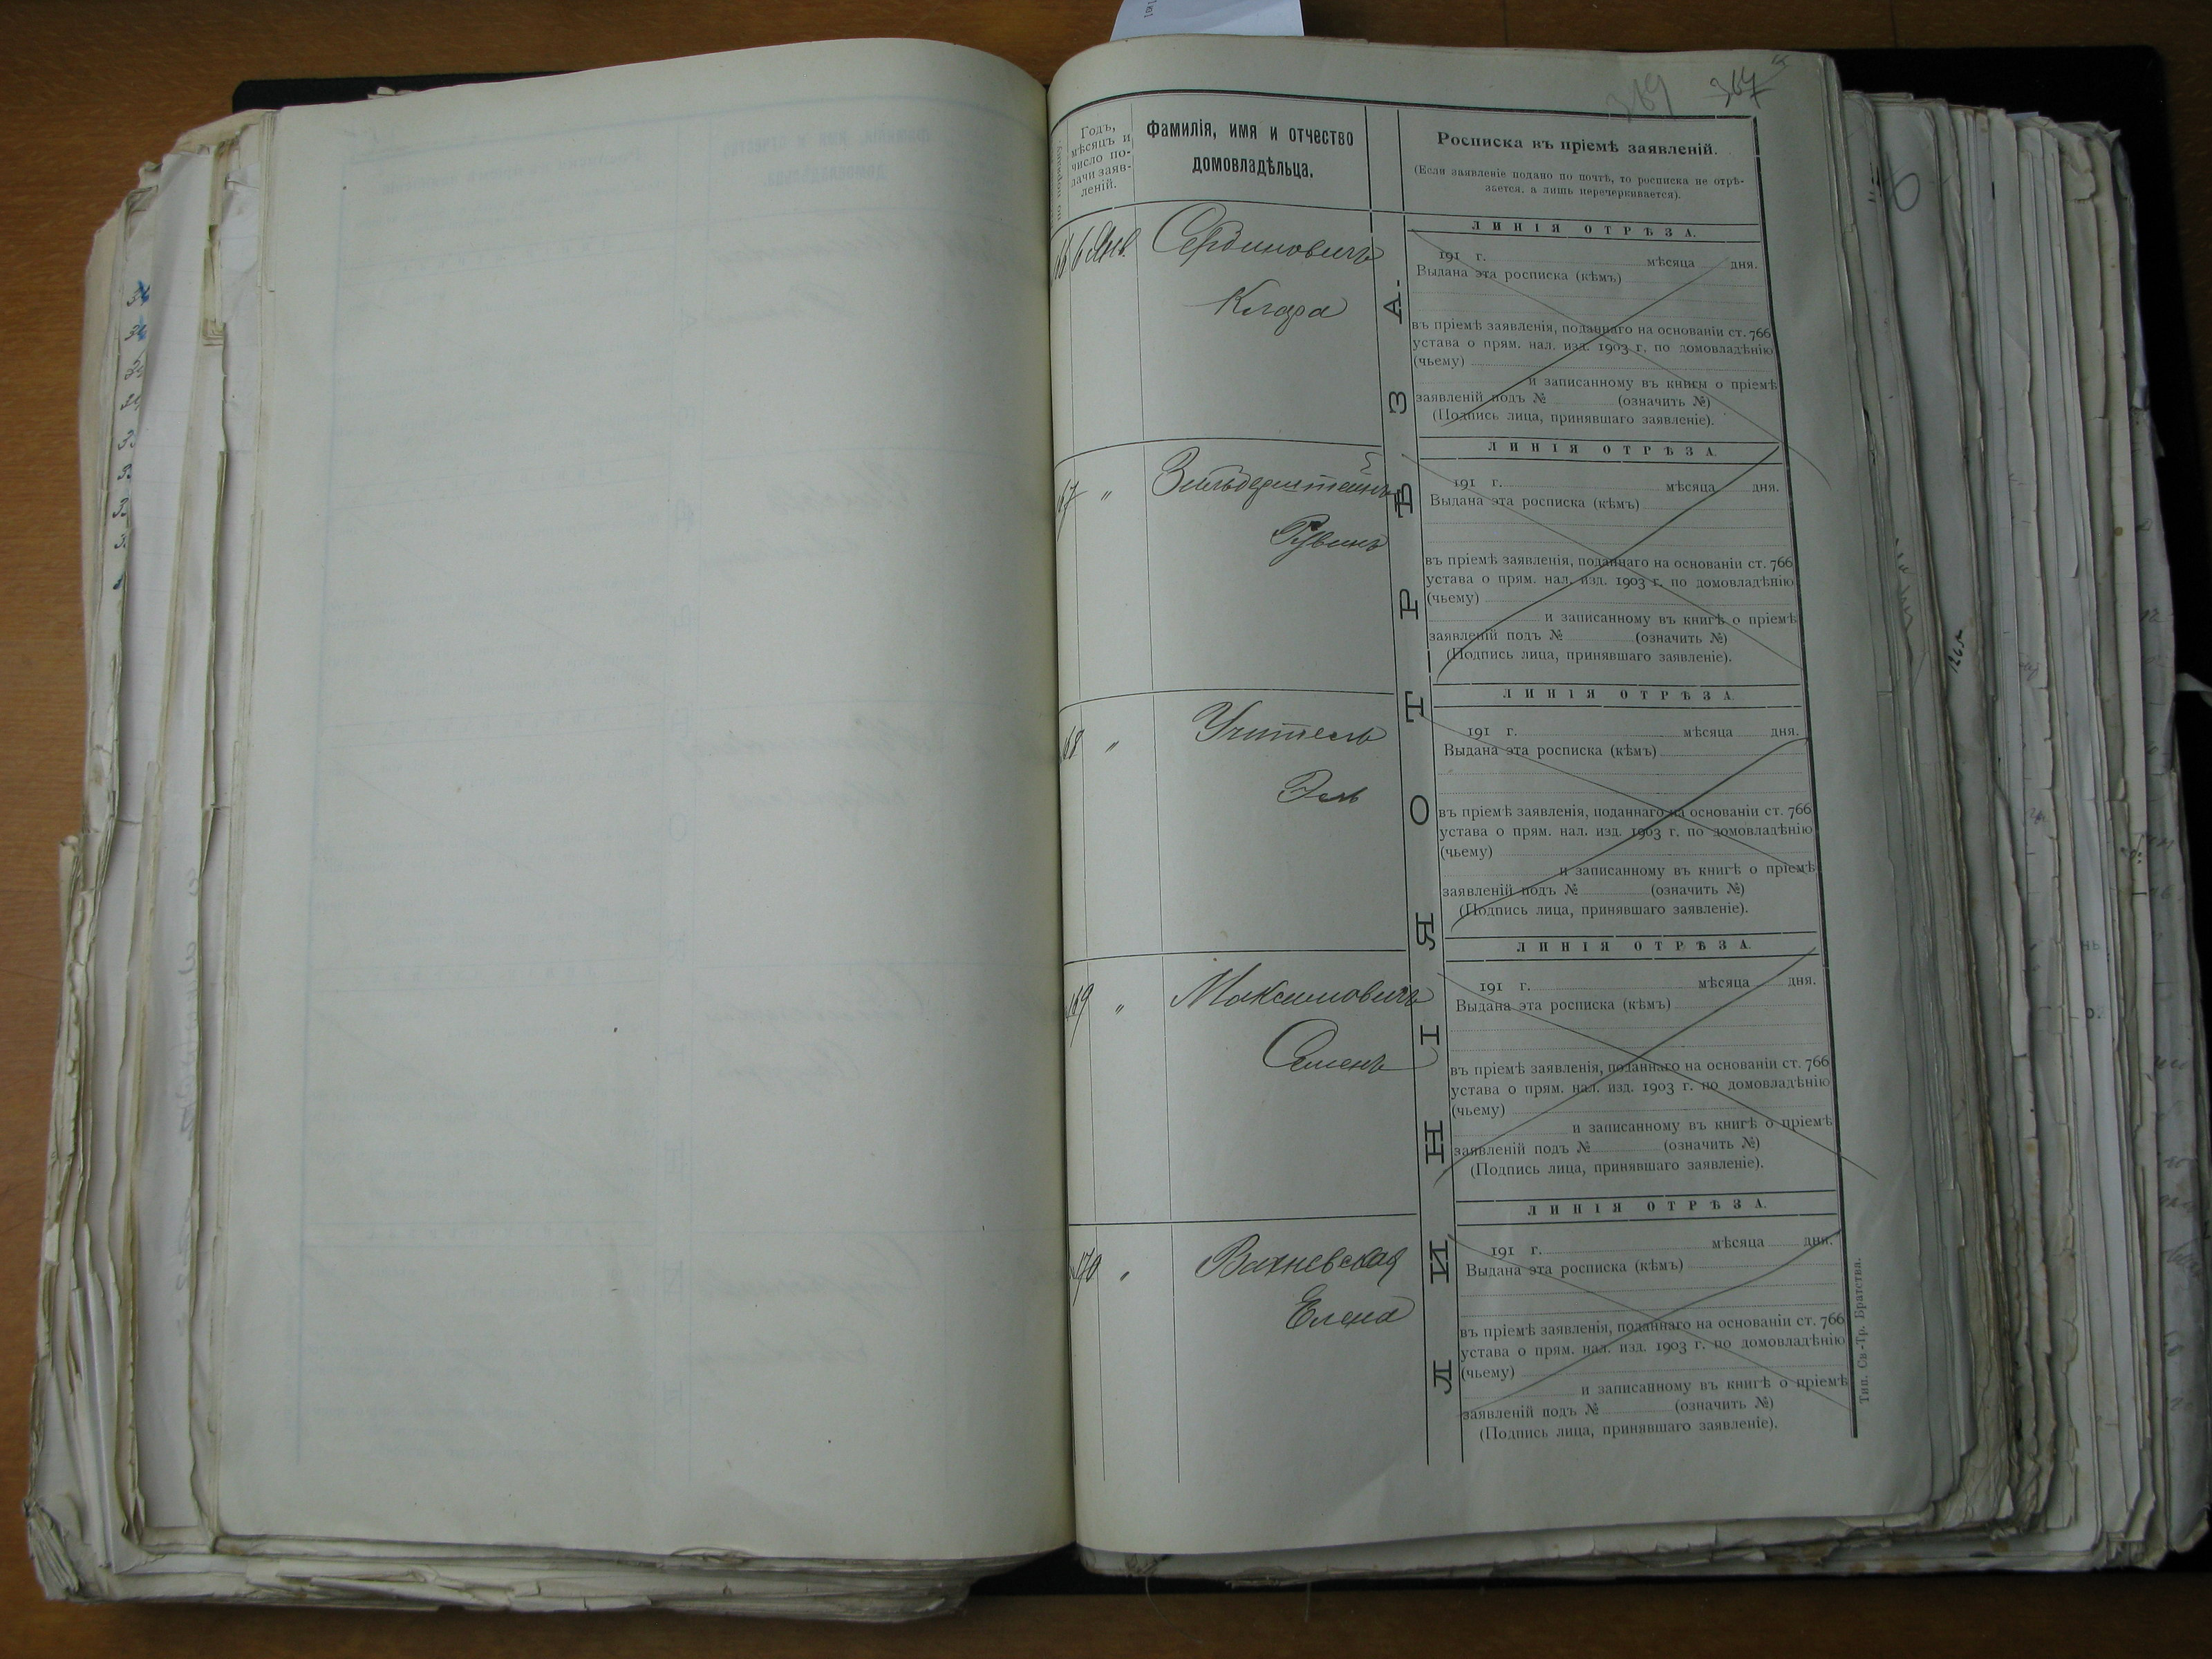 369 367
Годъ,
мѣсяцъ и
число по-
дачи заяв-
леній.
Фамилія, имя и отчество
домовладѣльца.
Росписка въ пріемѣ заявленій.
(Если заявленіе подано по почтѣ, то росписка не отрѣ-
зается, а лишь перечеркивается).
ЛИНІЯ ОТРѢЗА.
6 Янв.
Клара
ЛИНІЯ ОТРѢЗА.
191 г. мѣсяца дня.
Выдана эта росписка (кѣмъ)
въ пріемѣ заявленія, поданнаго на основаніи ст. 766
устава о прям. нал. изд. 1903 г. по домовладѣнію
(чьему)
и записанному въ книгы о пріемѣ
заявленій подъ № (означить №)
(Подпись лица, принявшаго заявленіе).
167 "
Зильберштейнъ
Рувинъ
ЛИНІЯ ОТРѢЗА.
191 г. мѣсяца дня.
Выдана эта росписка (кѣмъ)
въ пріемѣ заявленія, поданнаго на основаніи ст. 766
устава о прям. нал. изд. 1903 г. по домовладѣнію
(чьему)
и записанному въ книгѣ о пріемѣ
заявленій подъ № (означить №)
(Подпись лица, принявшаго заявленіе).
168 "
Учитель
Эль
ЛИНІЯ ОТРѢЗА.
191 г. мѣсяца дня.
Выдана эта росписка (кѣмъ)
въ пріемѣ заявленія, поданнаго на основаніи ст. 766
устава о прям. нал. изд. 1903 г. по домовладѣнію
(чьему)
и записанному въ книгѣ о пріемѣ
заявленій подъ № (означить №)
(Подпись лица, принявшаго заявленіе).
169 "
Максимовичъ
Семенъ
ЛИНІЯ ОТРѢЗА.
191 г. мѣсяца дня.
Выдана эта росписка (кѣмъ)
въ пріемѣ заявленія, поданнаго на основаніи ст. 766
устава о прям. нал. изд. 1903 г. по домовладѣнію
(чьему)
и записанному въ книгѣ о пріемѣ
заявленій подъ № (означить №)
(Подпись лица, принявшаго заявленіе).
170 "
Вахневская
Елена
ЛИНІЯ ОТРѢЗА.
191 г. мѣсяца дня.
Выдана эта росписка (кѣмъ)
въ пріемѣ заявленія, поданнаго на основаніи ст. 766
устава о прям. нал. изд. 1903 г. по домовладѣнію
(чьему)
и записанному въ книгѣ о пріемѣ
заявленій подъ № (означить №)
(Подпись лица, принявшаго заявленіе).
Тип. Св-Тр. Братства.